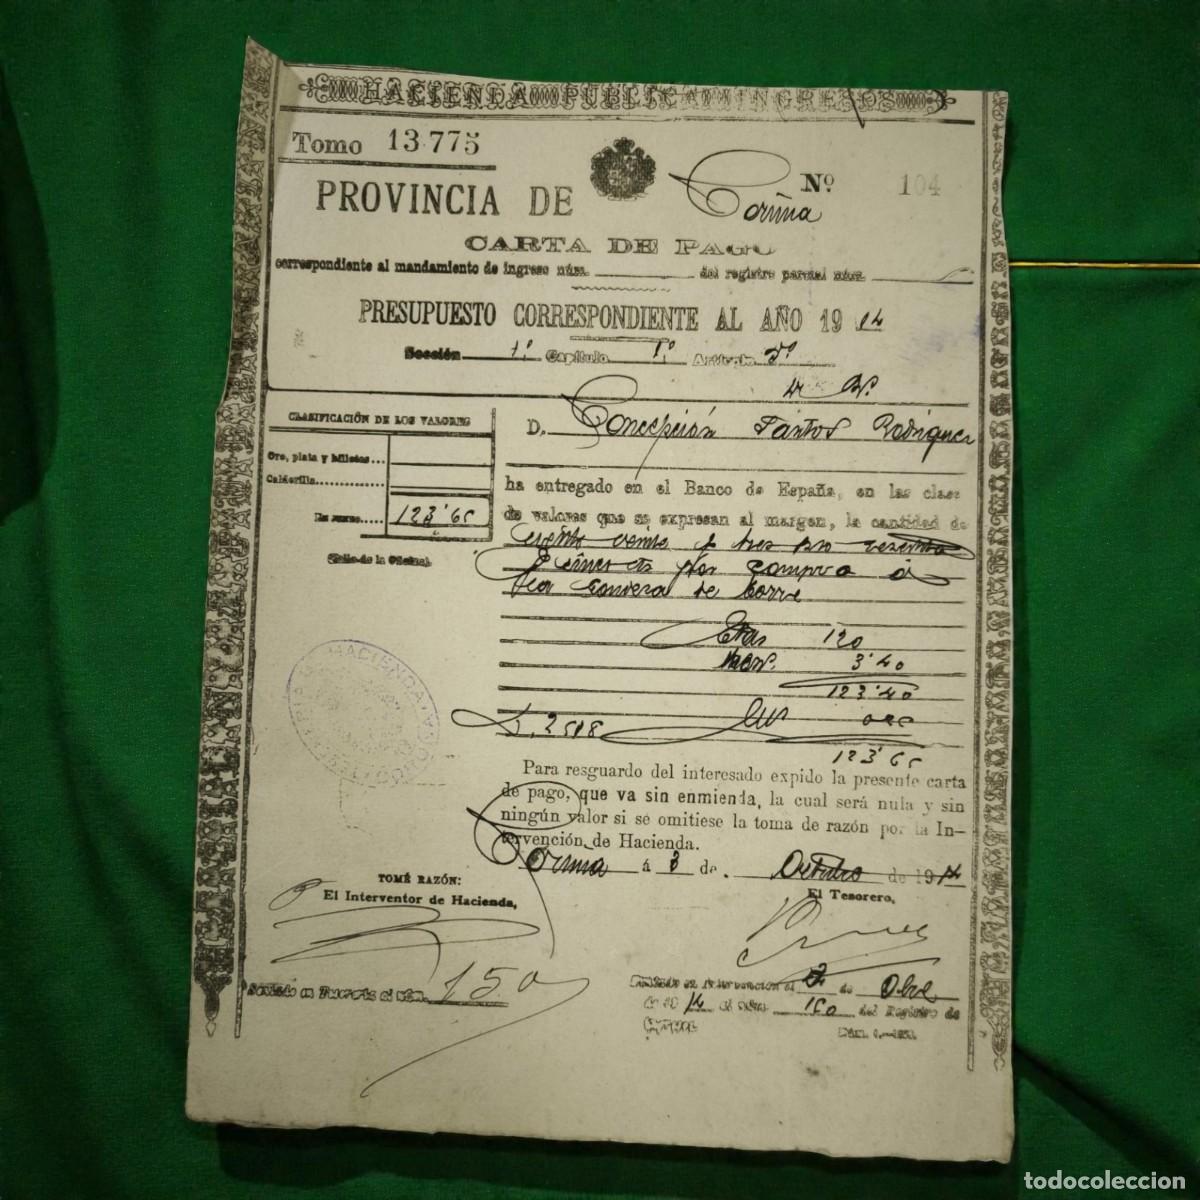 HACIENDA PUBLICA INGRESOS
Tomo 13.775
Nº 104
PROVINCIA DE Coruña
CARTA DE PAGO
correspondiente al mandamiento de ingreso núm. del registro parcial núm.
PRESUPUESTO CORRESPONDIENTE AL AÑO 1914
Sección 1º Capítulo 1º Artículo 5º
CLASIFICACIÓN DE LOS VALORES
Oro, plata y billetes...
Calderilla
123'65
Sello de la Oficina.
D. Concepción Santos Rodriguez
ha entregado en el Banco de España, en las clases
de valores que se expresan al margen, la cantidad de
ciento veinte y tres pts sesenta
y cinco cts por compra a
de Torre
120
3'40
123'40
123'65
Para resguardo del interesado expido la presente carta
de pago, que va sin enmienda, la cual será nula y sin
ningún valor si se omitiese la toma de razón por la In-
tervención de Hacienda.
Coruña á 3 de Octubre de 1914
TOMÉ RAZÓN:
El Interventor de Hacienda,
El Tesorero,
Sentado en al núm. 150
Sentado en Intervención el 2 de Obre
de 1914 al núm. 150 del Registro de
HACIENDA
todocoleccion